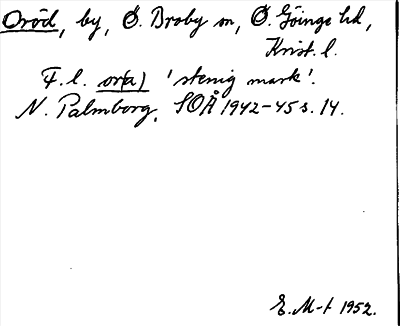 Oröd, by, Ö. Broby sn, Ö. Göinge hd,
Krist. l.
F. l. or(a) 'stenig mark'.
N. Palmborg, SOÅ 1942-45 s. 14.
E. M-t 1952.